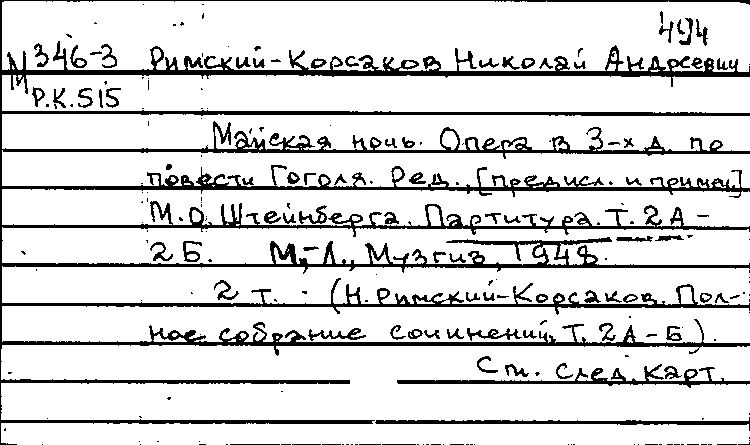 494
М 346-3 Римский-Корсаков Николай Андреевич
Р.К.515
Майская ночь. Опера в 3-х д. по
повести Гоголя. Ред., [предисл. и примеч.]
М.О. Штейнберга. Партитура. Т. 2А-
2Б. М.-Л., Музгиз, 1948.
2 т. (Н. Римский-Корсаков. Пол-
ное собрание сочинений. Т. 2А-Б).
См. след. карт.